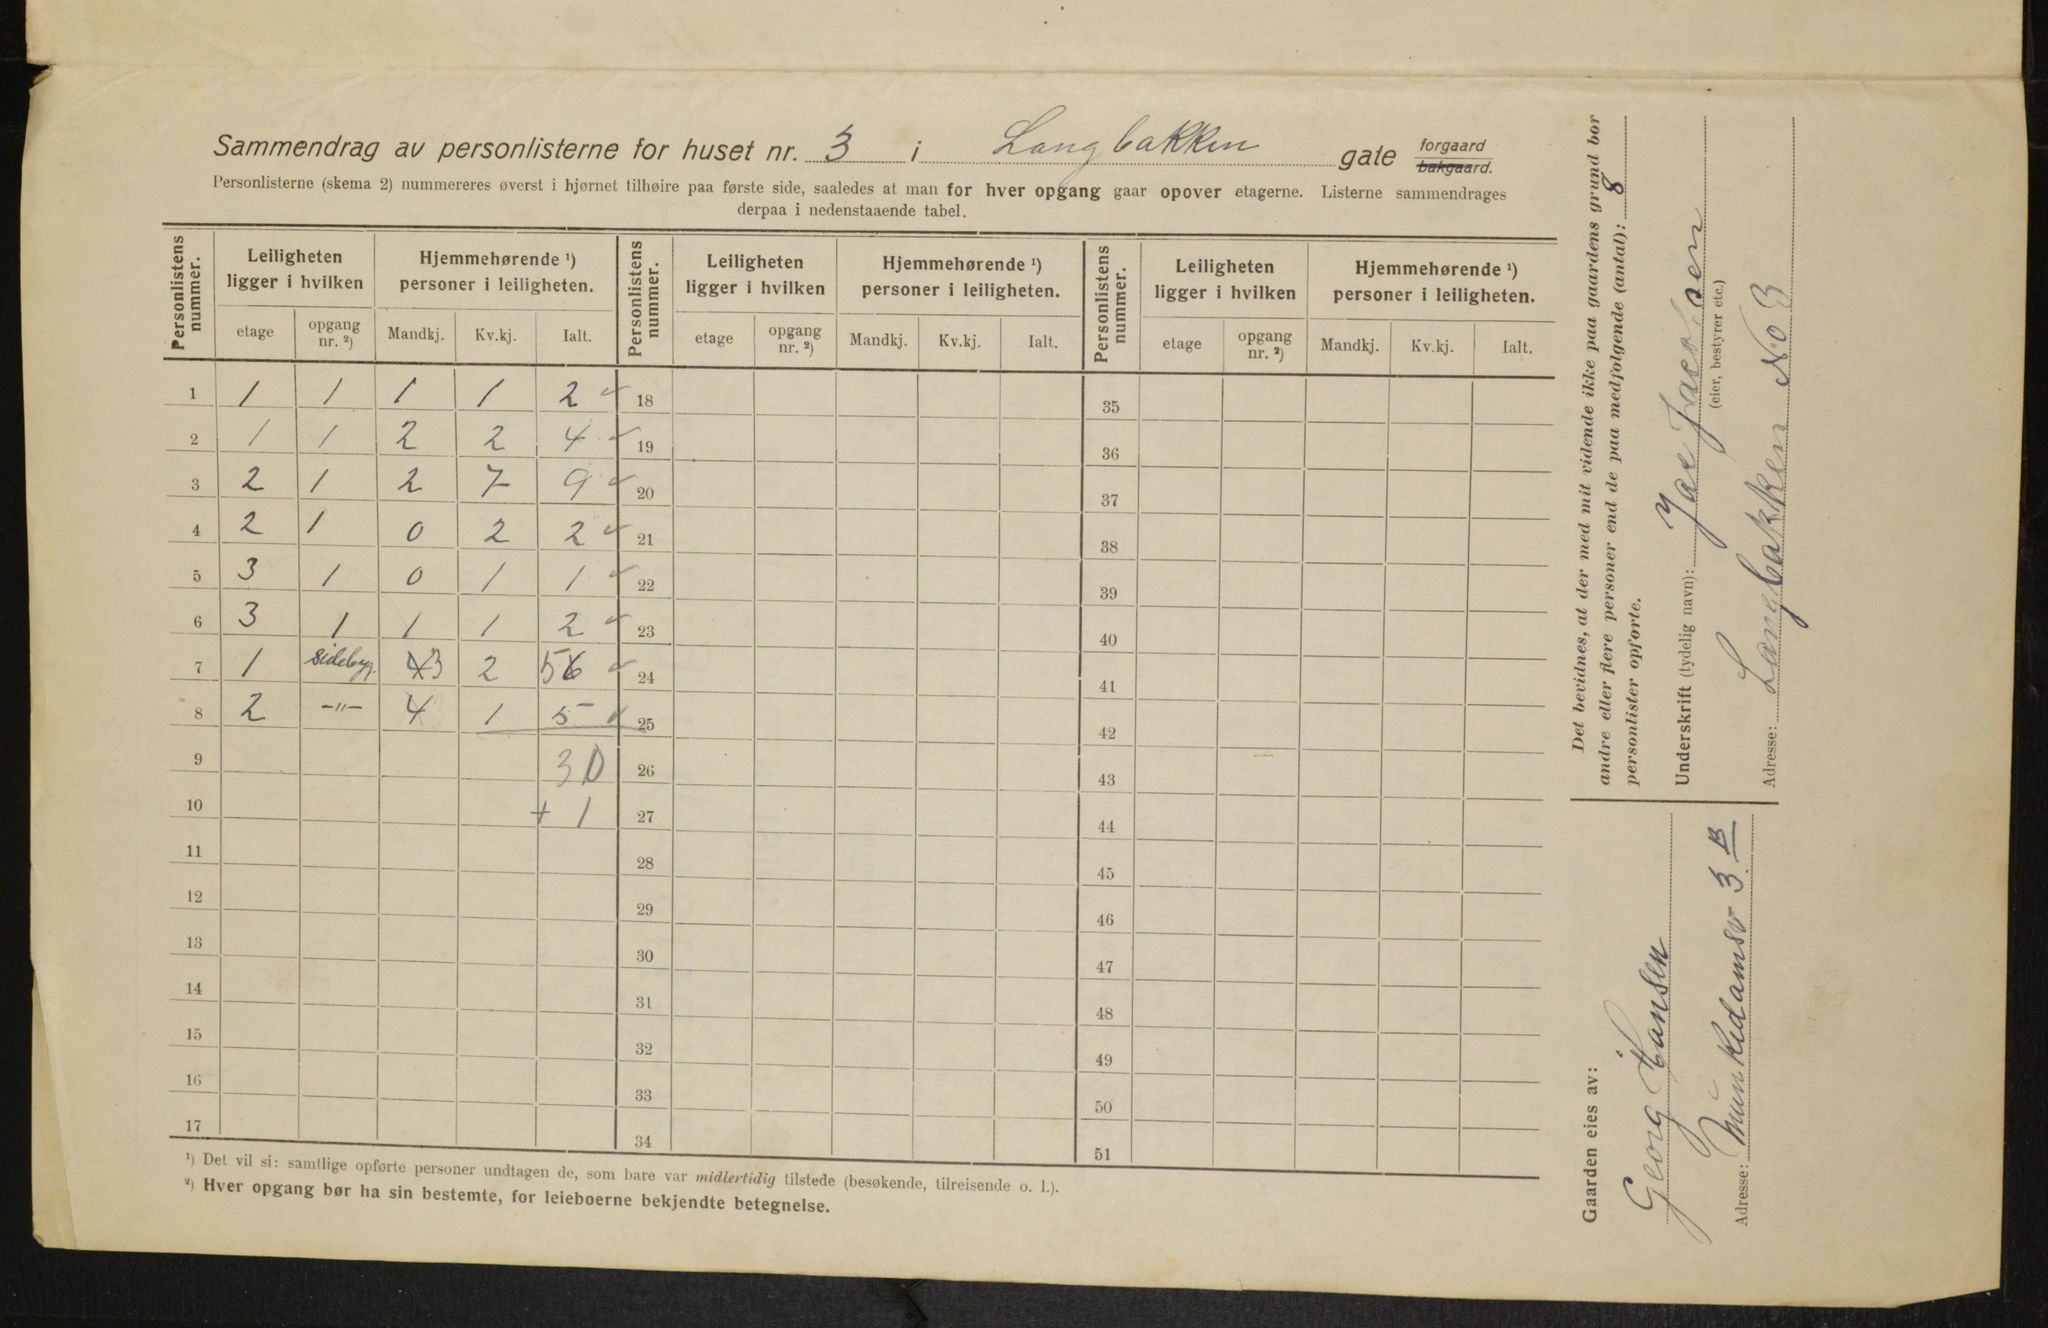 Sammendrag av personlisterne for huset nr. 3 i Langbakken gate forgaard bakgaard.
Personlisterne (skema 2) nummereres øverst i hjørnet tilhøire paa første side, saaledes at man for hver opgang gaar opover etagerne. Listerne sammendrages
derpaa i nedenstaaende tabel.
Personlistens nummer. Leiligheten ligger i hvilken Hjemmehørende ¹) personer i leiligheten. Personlistens nummer. Leiligheten ligger i hvilken Hjemmehørende ¹) personer i leiligheten. Personlistens nummer. Leiligheten ligger i hvilken Hjemmehørende ¹) personer i leiligheten.
etage opgang nr. ²) Mandkj. Kv.kj. Ialt. etage opgang nr. ²) Mandkj. Kv.kj. Ialt. etage opgang nr. ²) Mandkj. Kv.kj. Ialt.
1 1 1 1 1 2 18 35
2 1 1 2 2 4 19 36
3 2 1 2 7 9 20 37
4 2 1 0 2 2 21 38
5 3 1 0 1 1 22 39
6 3 1 1 1 2 23 40
7 1 Sidebyg. 43 2 56 24 41
8 2 -"- 4 1 5 25 42
9 30 26 43
10 + 1 27 44
11 28 45
12 29 46
13 30 47
14 31 48
15 32 49
16 33 50
17 34 51
¹) Det vil si: samtlige opførte personer undtagen de, som bare var midlertidig tilstede (besøkende, tilreisende o. l.).
²) Hver opgang bør ha sin bestemte, for leieboerne bekjendte betegnelse.
Det bevidnes, at der med mit vidende ikke paa gaardens grund bor
andre eller flere personer end de paa medfølgende (antal): 8
personlister opførte.
Underskrift (tydelig navn): Jac Jacobsen
(eier, bestyrer etc.)
Adresse: Langbakken No 3
Gaarden eies av:
Georg Hansen
Adresse: Munkedamsv 3 B